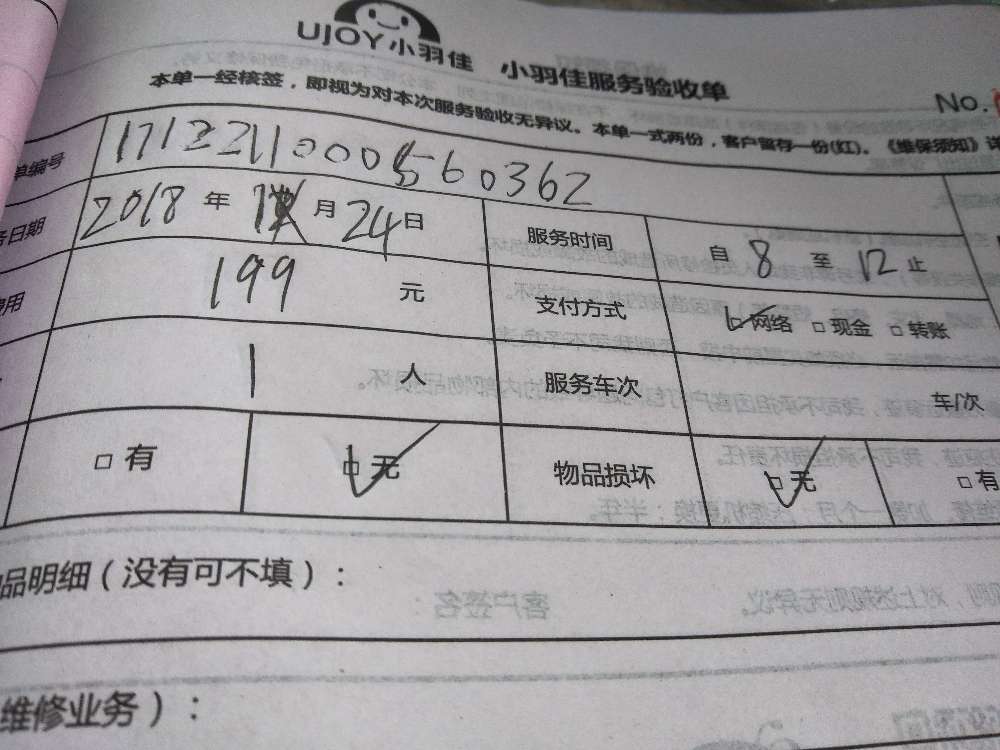 UJOY小羽佳 小羽佳服务验收单
No.
本单一经核签，即视为对本次服务验收无异议。本单一式两份，客户留存一份(红)。《维保须知》详
单编号 171221100056 0362
务日期 2018 年 月 24 日 服务时间 自 8 至 12 止
费用 199 元 支付方式 网络 现金 转账
1 人 服务车次 车/次
有 无 物品损坏 无 有
品明细（没有可不填）：
维修业务）：